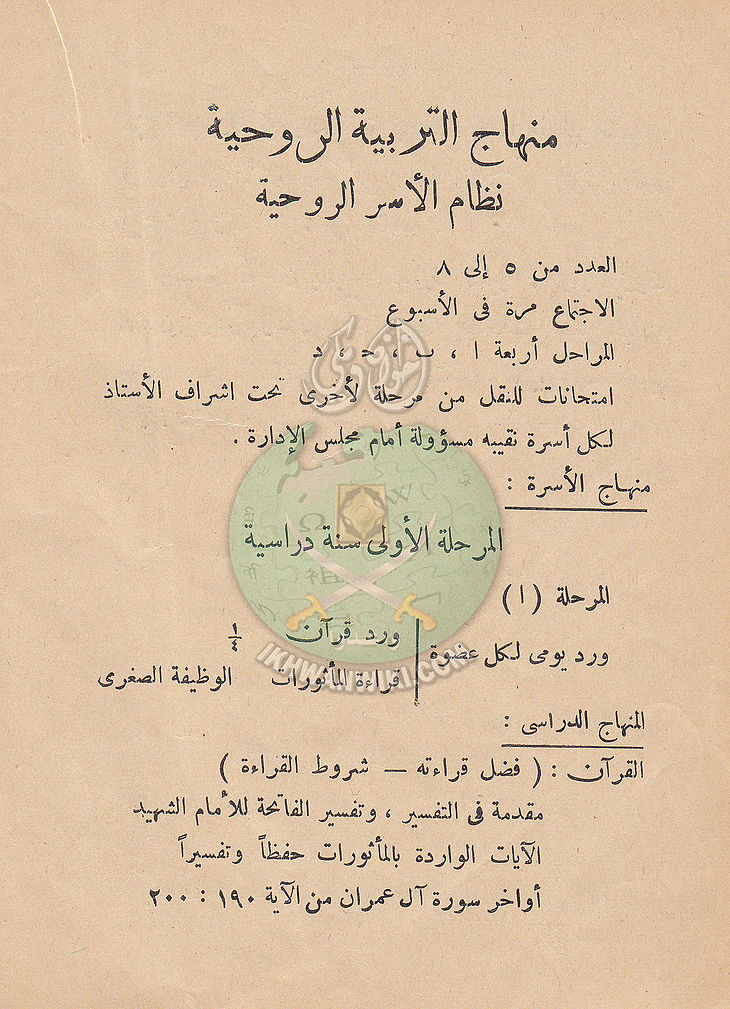 منهاج التربية الروحية
نظام الأسر الروحية
العدد من ٥ إلى ٨
الاجتماع مرة فى الأسبوع
المراحل أربعة ا ، ب ، ح ، د
امتحانات للنقل من مرحلة لأخرى تحت اشراف الأستاذ
لكل أسرة نقيبه مسؤولة أمام مجلس الإدارة .
منهاج الأسرة :
المرحلة الأولى سنة دراسية
المرحلة ( ا )
ورد يومى لكل عضوة
ورد قرآن ١/٤
قراءة المأثورات الوظيفة الصغرى
المنهاج الدراسى :
القرآن : ( فضل قراءته — شروط القراءة )
مقدمة فى التفسير ، وتفسير الفاتحة للأمام الشهيد
الآيات الواردة بالمأثورات حفظاً وتفسيراً
أواخر سورة آل عمران من الآية ١٩٠ : ٢٠٠
IKHWANWIKI.COM